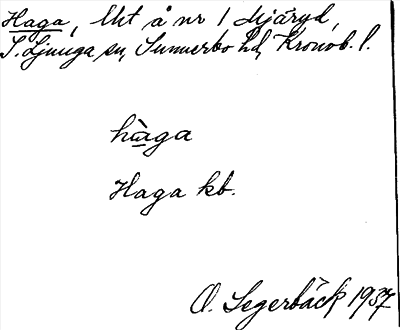 Haga, lht å nr 1 Mjäryd,
S. Ljunga sn, Sunnerbo hd, Kronob. l.
hàga
Haga kb.
O. Segerbäck 1937